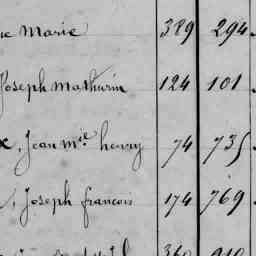 Marie 389 294
Joseph Mathurin 124 101
Jean Mie henry 74 735
Joseph francois 174 769
360 910